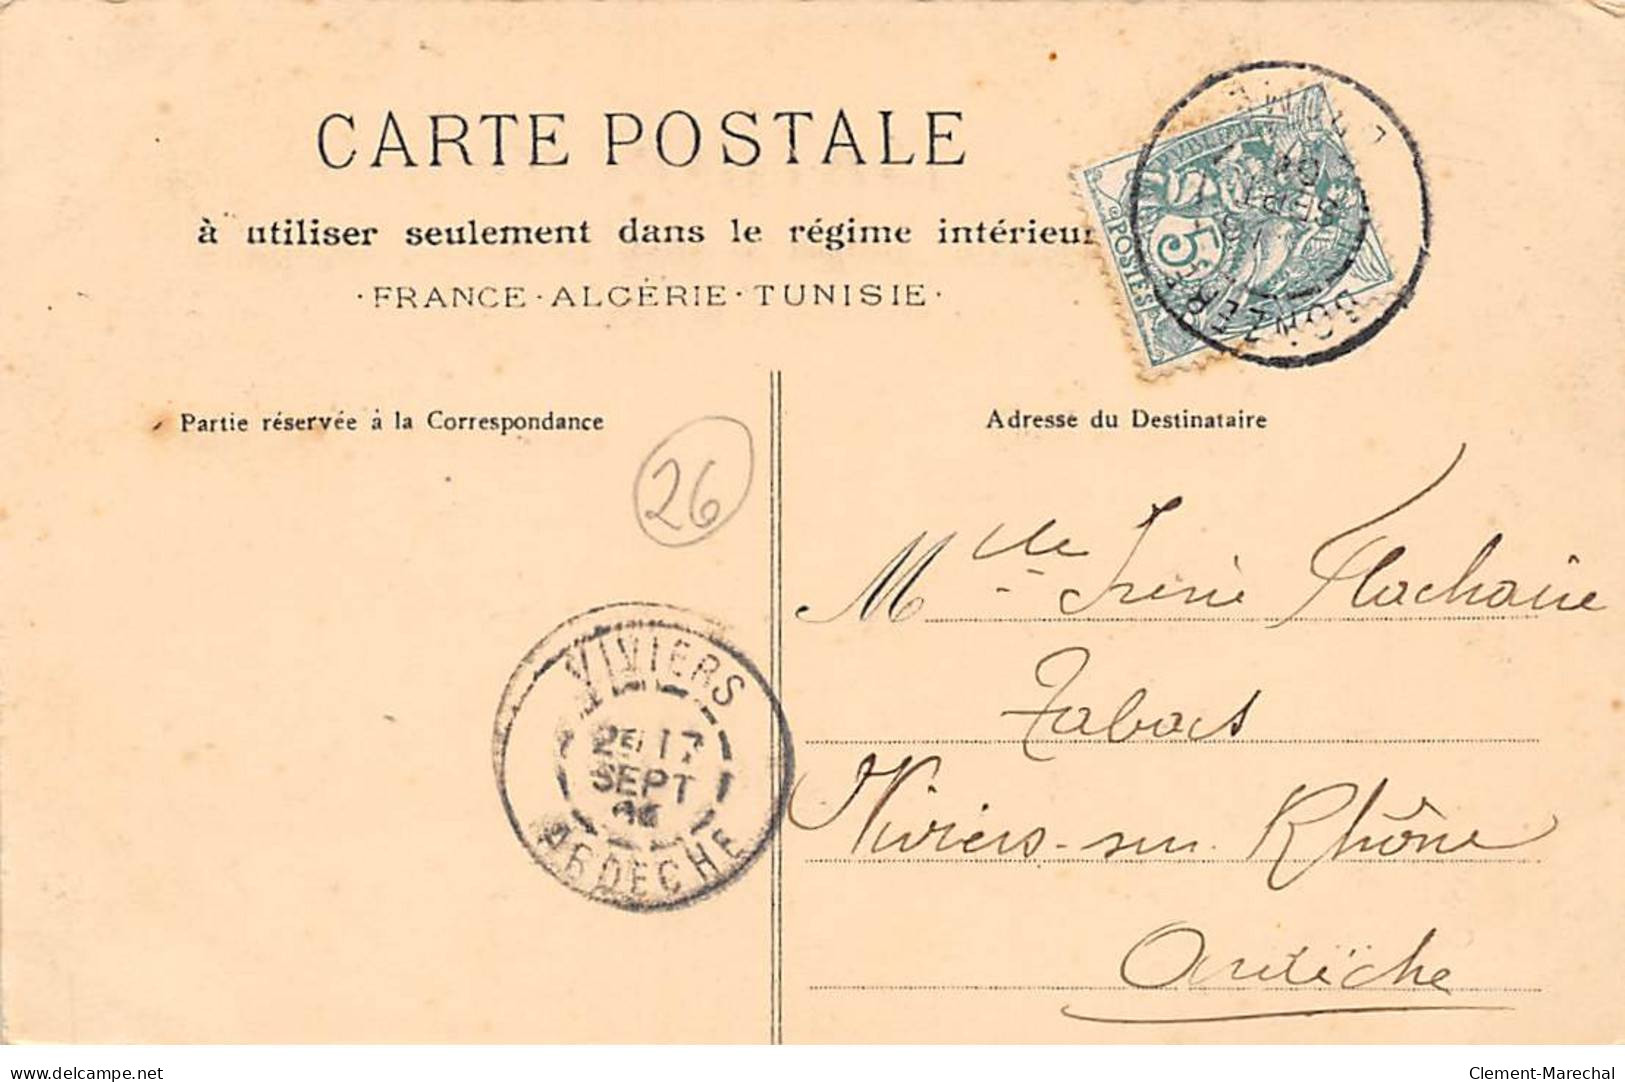 CARTE POSTALE
à utiliser seulement dans le régime intérieur
· FRANCE · ALGÉRIE · TUNISIE ·
5c
POSTES
DONZERE
DROME
SEPT
Partie réservée à la Correspondance
Adresse du Destinataire
26
Mlle Irène Flachaire
Tabacs
Viviers-sur-Rhône
Ardèche
VIVIERS
2E 17
SEPT
ARDECHE
delcampe.net
Clement-Marechal